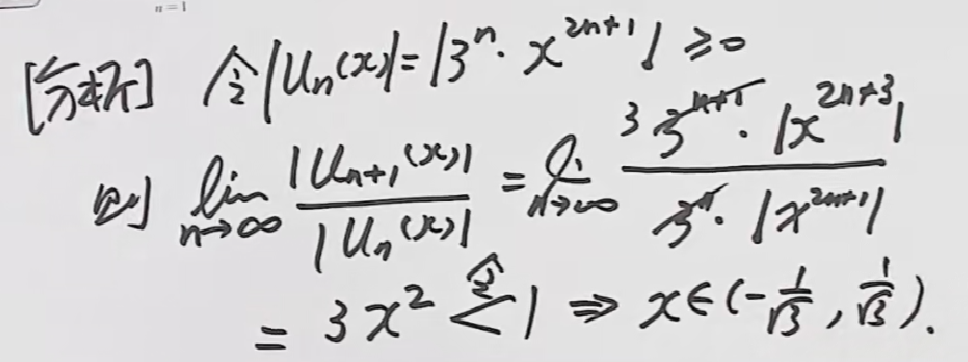 n=1
[分析] 令|Uₙ(x)|=|3ⁿ·x²ⁿ⁺¹|≥0
则 lim n→∞ |Uₙ₊₁(x)| / |Uₙ(x)| = lim n→∞ 3 3ⁿ⁺¹·|x²ⁿ⁺³| / 3ⁿ·|x²ⁿ⁺¹|
= 3x² 令< 1 ⇒ x∈(-1/√3, 1/√3).